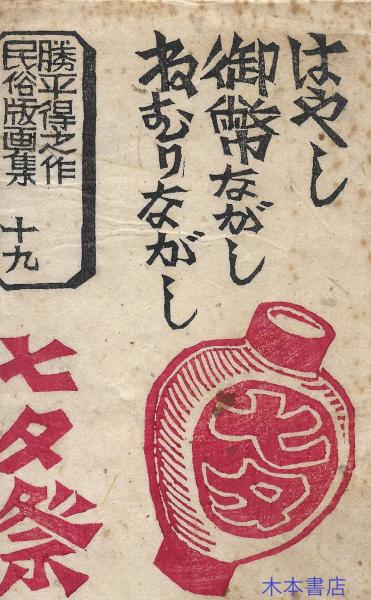 はやし
御幣ながし
ねむりながし
勝平得之作
民俗版画集
十九
七夕祭
七夕
木本書店